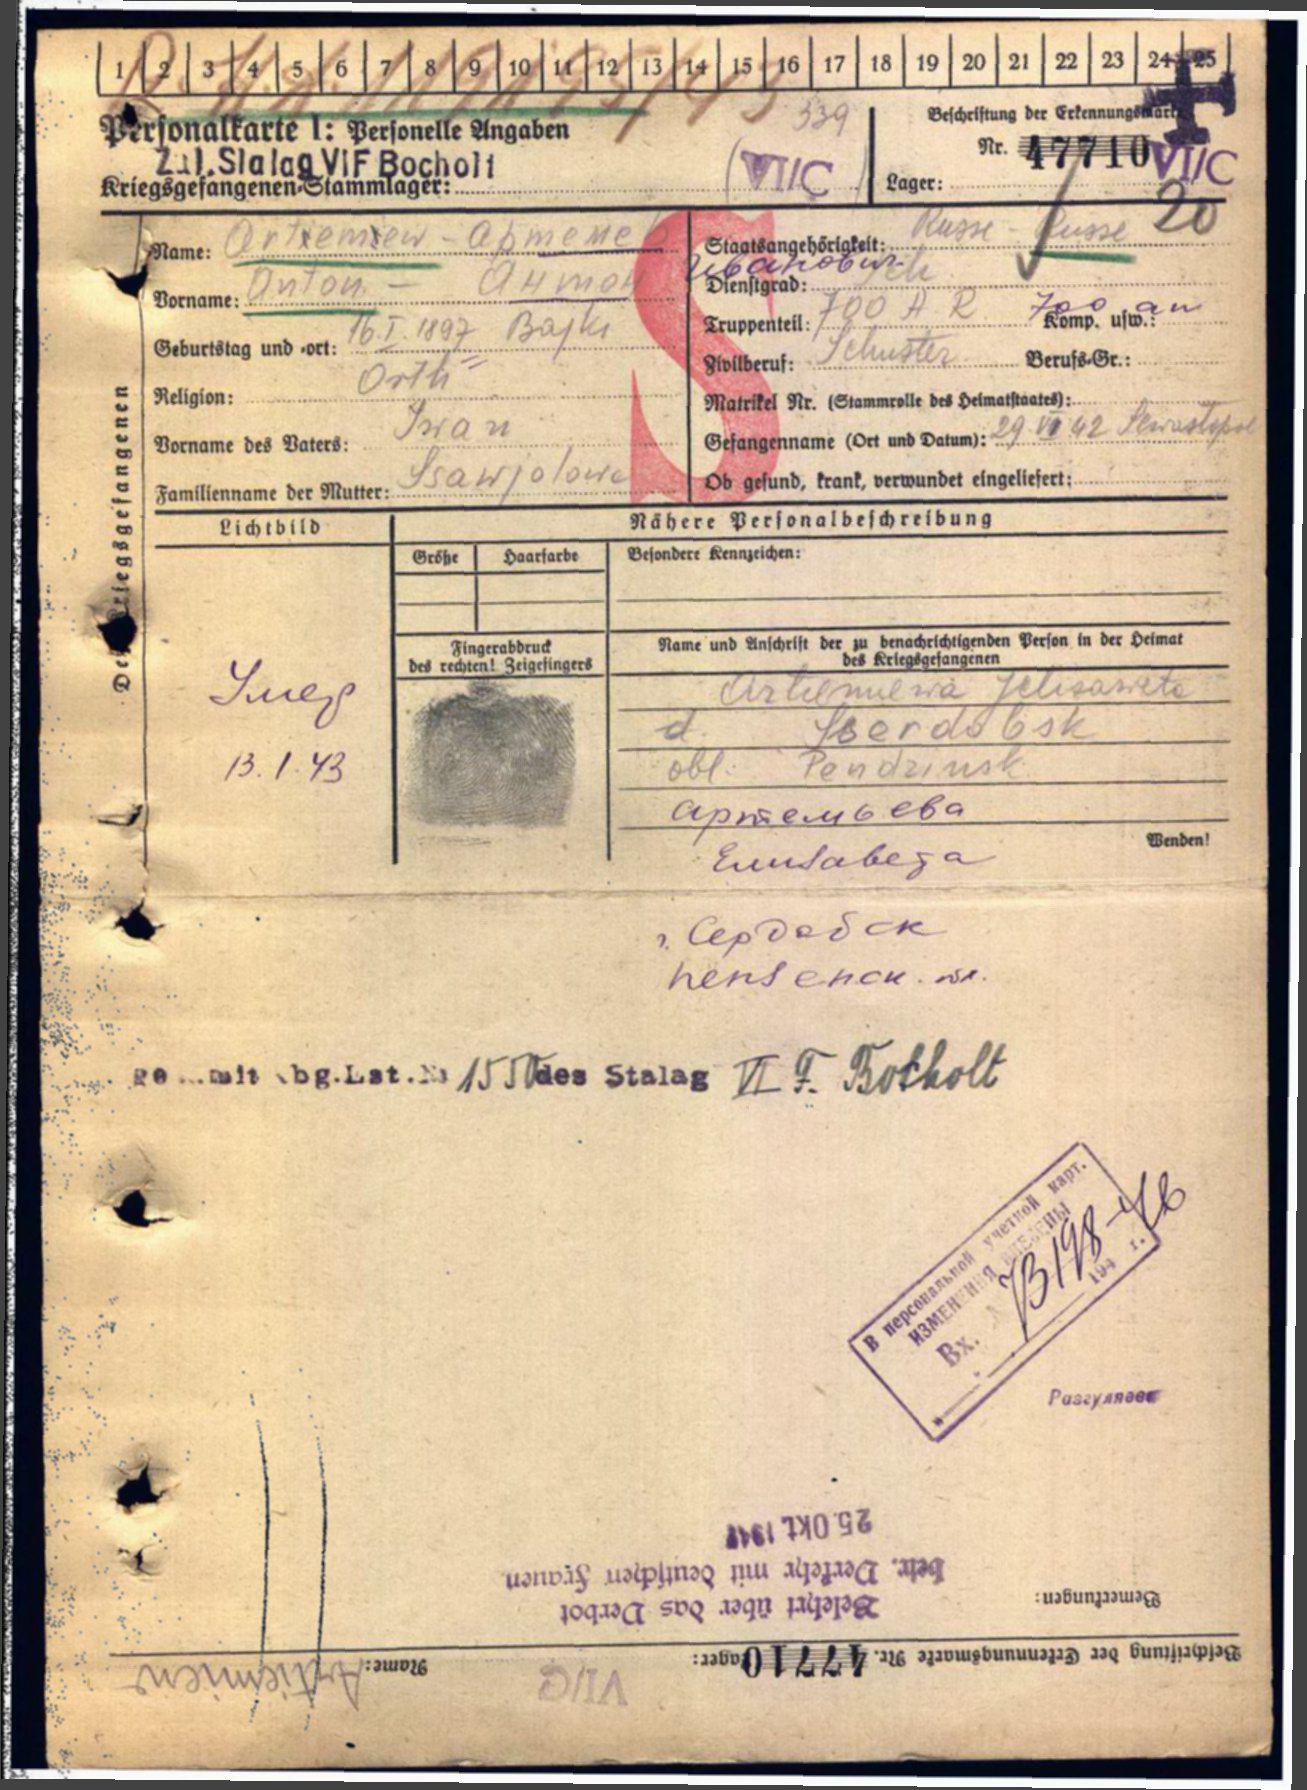 1 2 3 4 5 6 7 8 9 10 11 12 13 14 15 16 17 18 19 20 21 22 23 24 25
Personalkarte I: Personelle Angaben
339
Beschriftung der Erkennungsmarke
Nr. 47710 VI/C
Zul. Stalag VI F Bocholt
Kriegsgefangenen-Stammlager:
VI/C
Lager:
20
Des Kriegsgefangenen
Name: Artiemiew - Артемев
Vorname: Anton - Антон
Иванович
Geburtstag und -ort: 16 I. 1897 Bajki
Religion: Orth
Vorname des Vaters: Iwan
Familienname der Mutter: Ssawjolowa
S
Staatsangehörigkeit: Russe - Russe
Dienstgrad:
Truppenteil: 700 A R Komp. usw.: 700 ап
Zivilberuf: Schuster Berufs-Gr.:
Matrikel Nr. (Stammrolle des Heimatstaates):
Gefangenname (Ort und Datum): 29 VI 42 Sewastopol
Ob gesund, krank, verwundet eingeliefert:
Lichtbild
Nähere Personalbeschreibung
Größe Haarfarbe Besondere Kennzeichen:
Fingerabdruck
des rechten! Zeigefingers
Name und Anschrift der zu benachrichtigenden Person in der Heimat
des Kriegsgefangenen
Artiemiewa Jelisaweta
d. Sserdobsk
obl. Pendzinsk
Артемьева
Wenden!
Елизавета
г. Сердобск
Пензенск. обл.
Умер
13.1.43
mit Abg.Lst.Nr 1550 des Stalag VI F. Bocholt
В персональной учетной карт.
ИЗМЕНЕНИЯ ВНЕСЕНЫ
Вх. 73198-46
194 г.
Разгуляева
Beschriftung der Erkennungsmarke Nr. 47710 Lager: VI/C
Name: Artiemiew
Bemerkungen:
Belehrt über das Verbot
betr. Verkehr mit deutschen Frauen
25. Okt. 1942